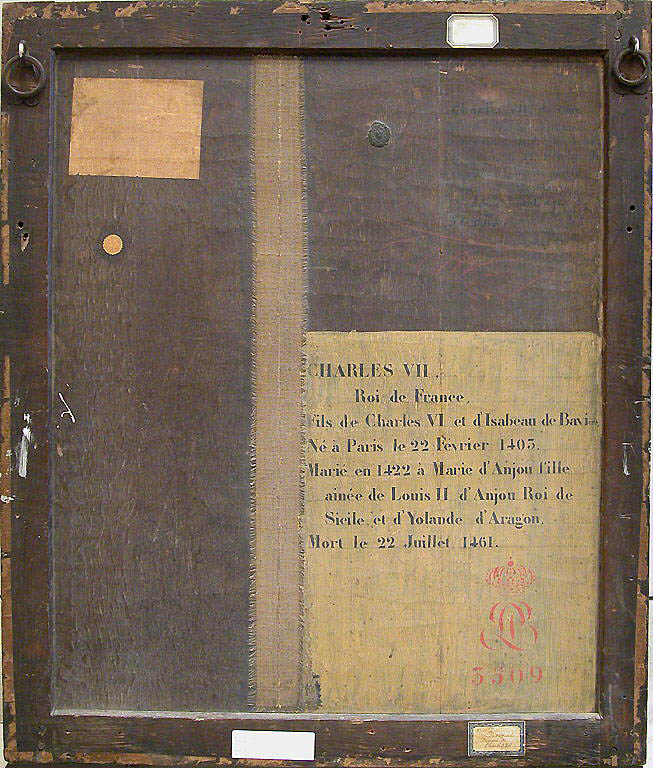 CHARLES VII,
Roi de France,
Fils de Charles VI et d'Isabeau de
Né à Paris le 22 Février 1403.
Marié en 1422 à Marie d'Anjou fille
ainée de Louis II d'Anjou Roi de
Sicile, et d'Yolande d'Aragon.
Mort le 22 Juillet 1461.
LP
3509